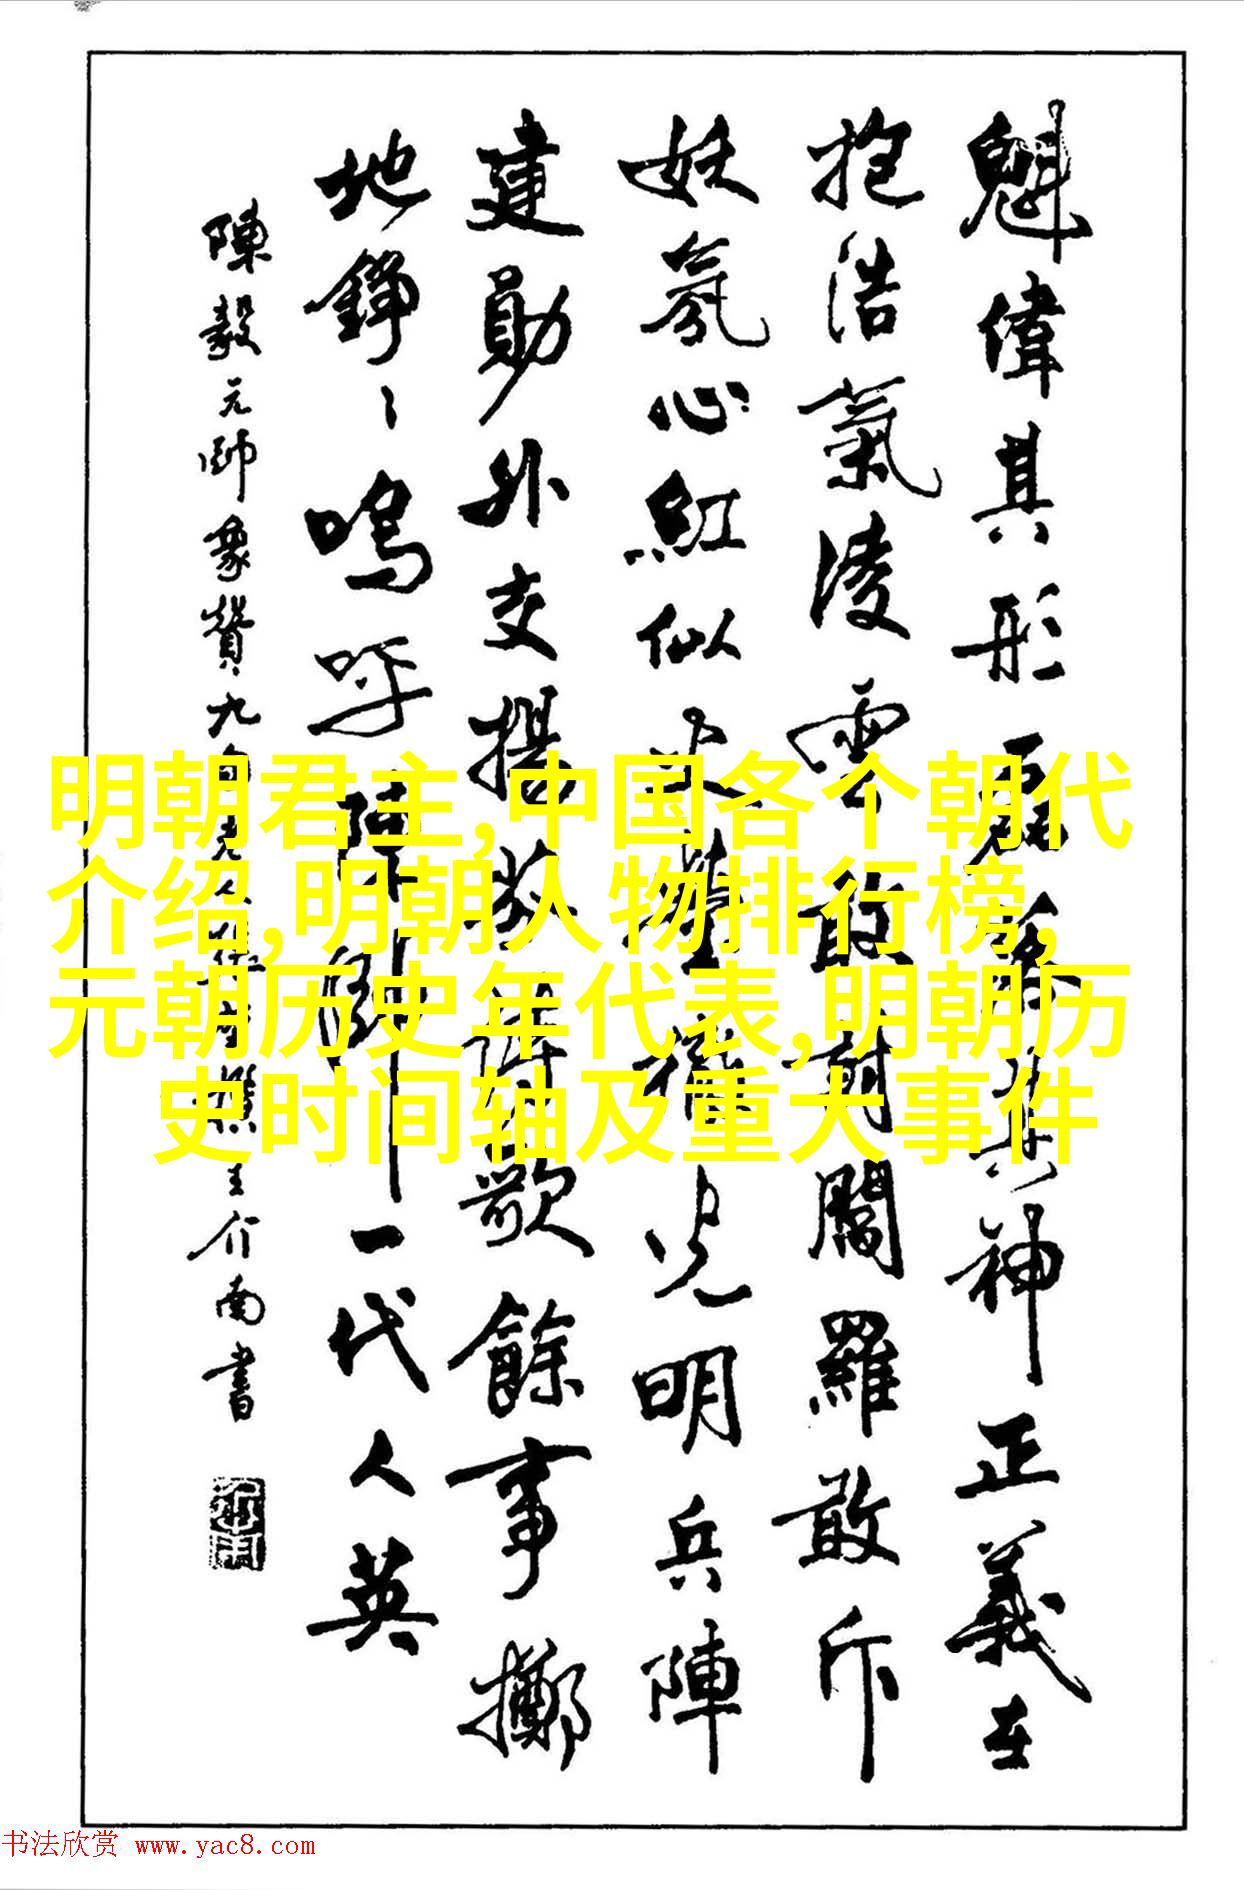 魁偉其形磊落其神正義在
抱浩氣凌雲敢剪閻羅敢斥
妖氛心紅似火積光明兵陣
建勛外交揚歌餘事擲
地錚〻嗚呼陳一代人英
陳毅元帥象贊九王介南書
明朝君主,中国各个朝代
介绍,明朝人物排行榜,
元朝历史年代表,明朝历
史时间轴及重大事件
书法欣赏 www.yac8.com